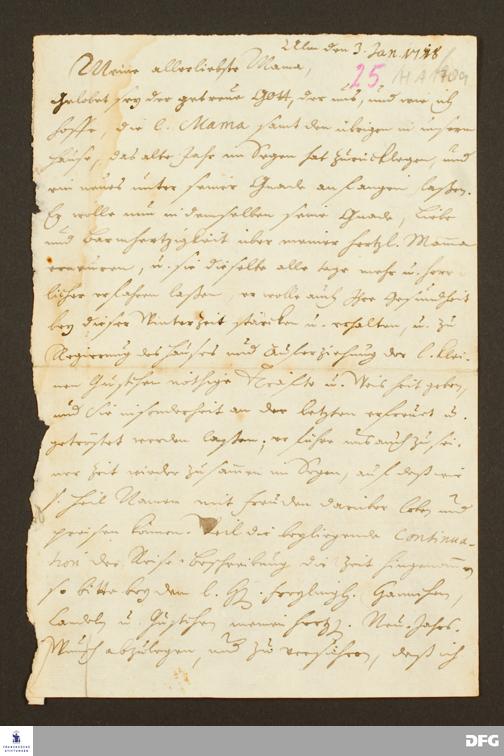 Ulm den 3. Jan. 1718
Meine allerliebste Mama,
25 HA 170a
Gelobet sey der getreue Gott, der uns, und wie ich
hoffe, die l. Mama samt den übrigen in unserm
Hause, das alte Jahr im Segen hat zurücklegen, und
ein neues unter seiner Gnade anfangen laßen.
Er wolle nun in demselben seine Gnade, Liebe
und Barmhertzigkeit über meiner hertzl. Mama
erneuren, u. sie dieselbe alle tage mehr u. herr-
licher erfahren laßen, er wolle auch Ihre Gesundheit
bey dieser Winterzeit stärcken u. erhalten, u. zu
Regierung des Hauses und Auferziehung der l. klei-
nen Gustchen nöthige Kräfte u. Weisheit geben,
und sie insonderheit an der letzten erfreuet u.
getröstet werden laßen; er führe uns auch zu sei-
ner Zeit wieder zusammen im Segen, auf daß wir
s. heil. Namen mit freuden darüber loben und
preisen können. Weil die beyliegende Continua-
tion der Reise-beschreibung die Zeit hingenommen
so bitte bey dem l. H. Freylingh.
u. Gustchen meinen hertzl. Neu-Jahrs-
Wunsch abzulegen, und zu versichern, daß ich
FRANCKESCHE STIFTUNGEN
DFG